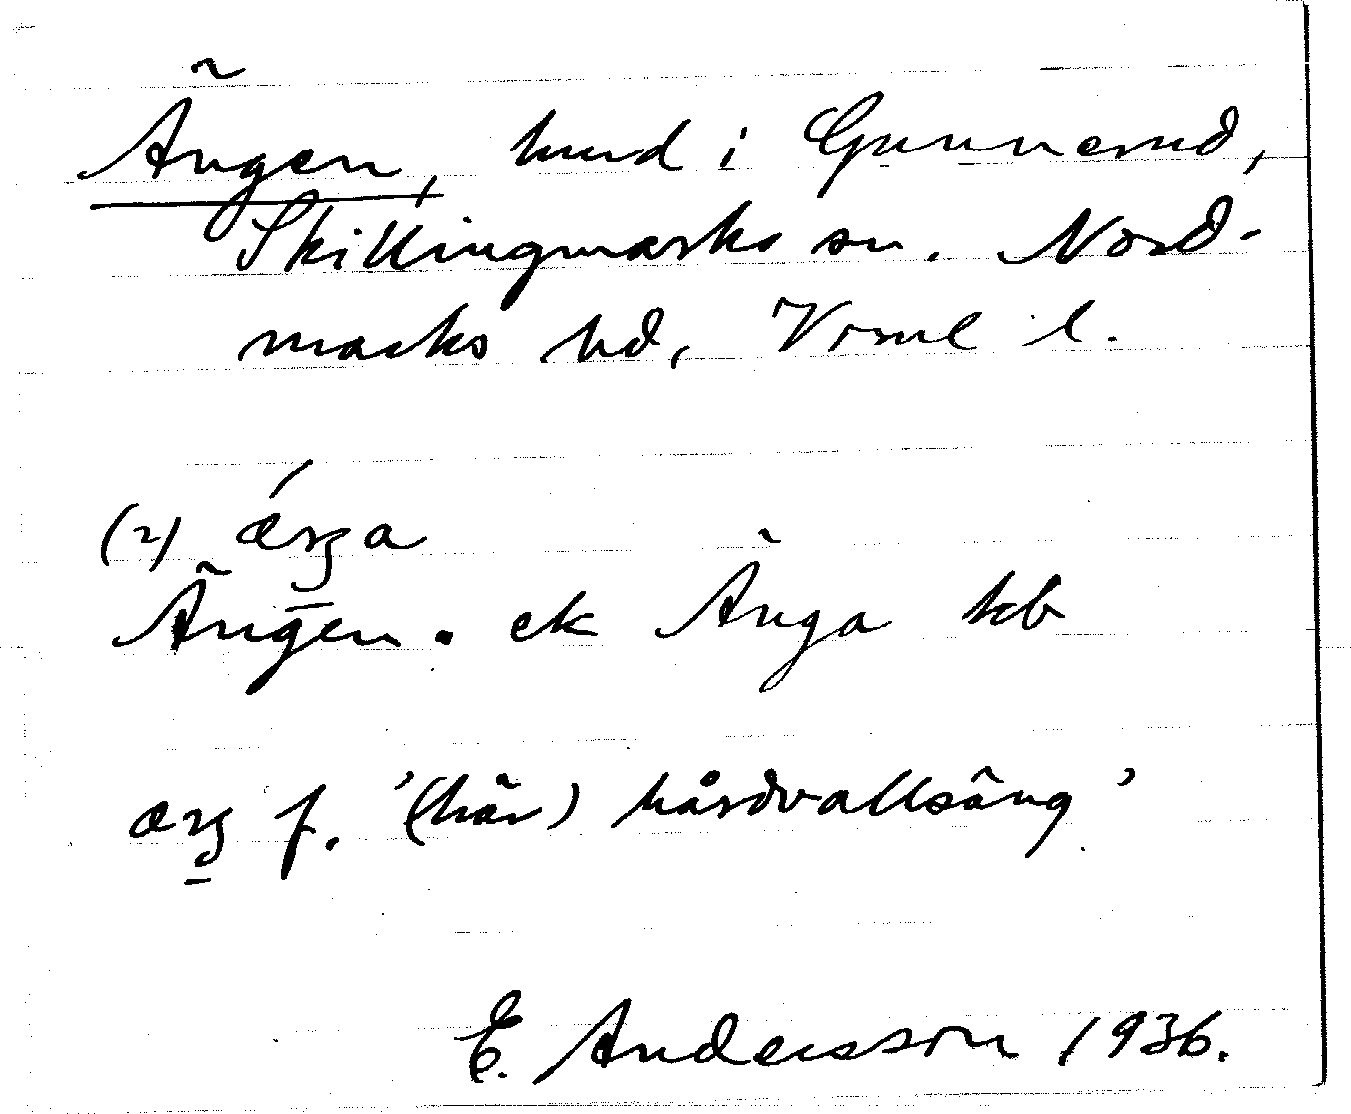 Ängen, hmd i Gunnerud,
Skillingmarks sn. Nord-
marks hd, Vrml l.
(2) ǽŋa
Ängen. ek Änga kb
æŋ f. '(här) hårdvallsäng'
E. Andersson 1936.